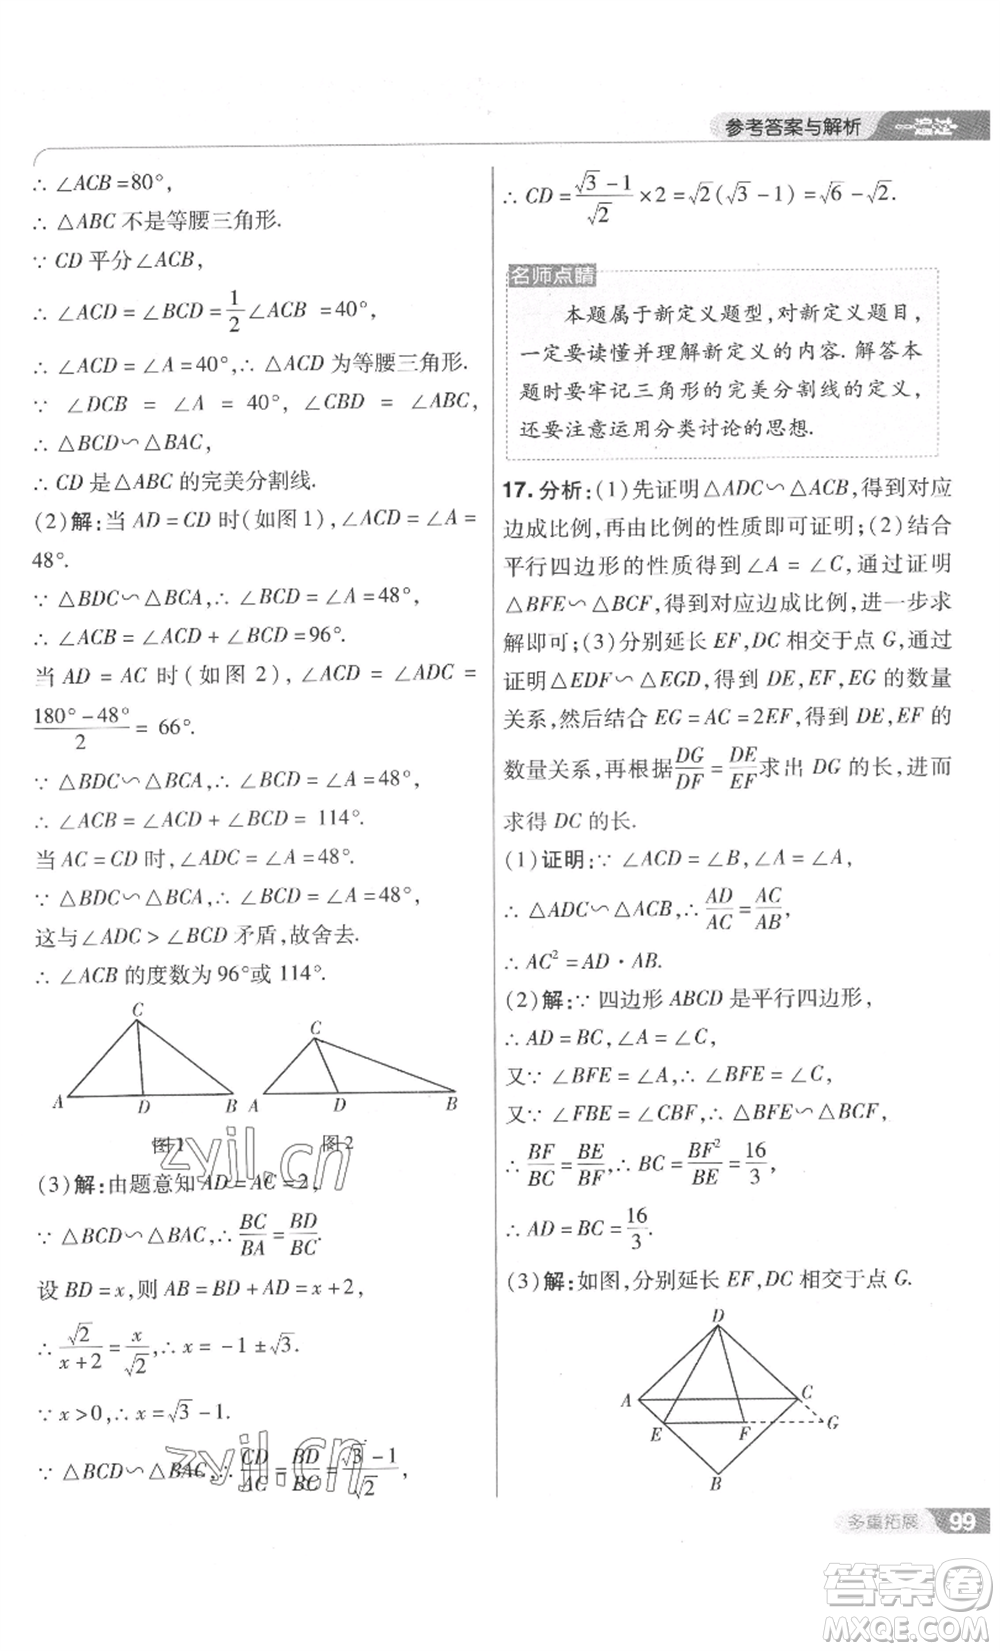 参考答案与解析 一遍过
∴ ∠ACB=80°,
∴ △ABC 不是等腰三角形.
∵ CD 平分∠ACB,
∴ ∠ACD = ∠BCD = 1/2 ∠ACB = 40°,
∴ ∠ACD = ∠A = 40°,∴ △ACD 为等腰三角形.
∵ ∠DCB = ∠A = 40°, ∠CBD = ∠ABC,
∴ △BCD∽△BAC,
∴ CD 是△ABC 的完美分割线.
(2)解:当 AD = CD 时(如图1),∠ACD = ∠A =
48°.
∵ △BDC∽△BCA,∴ ∠BCD = ∠A = 48°,
∴ ∠ACB = ∠ACD + ∠BCD = 96°.
当 AD = AC 时(如图2),∠ACD = ∠ADC =
(180° - 48°)/2 = 66°.
∵ △BDC∽△BCA,∴ ∠BCD = ∠A = 48°,
∴ ∠ACB = ∠ACD + ∠BCD = 114°.
当 AC = CD 时,∠ADC = ∠A = 48°.
∵ △BDC∽△BCA,∴ ∠BCD = ∠A = 48°,
这与∠ADC > ∠BCD 矛盾,故舍去.
∴ ∠ACB 的度数为 96°或 114°.
C
A D B
图1
C
A D B
图2
(3)解:由题意知 AD = AC = 2,
∵ △BCD∽△BAC,∴ BC/BA = BD/BC.
设 BD = x,则 AB = BD + AD = x + 2,
∴ √2/(x+2) = x/√2,∴ x = -1 ± √3.
∵ x > 0,∴ x = √3 - 1.
∵ △BCD∽△BAC,∴ CD/AC = BD/BC = (√3 - 1)/√2,
∴ CD = (√3 - 1)/√2 × 2 = √2(√3 - 1) = √6 - √2.
名师点睛
本题属于新定义题型,对新定义题目,
一定要读懂并理解新定义的内容.解答本
题时要牢记三角形的完美分割线的定义,
还要注意运用分类讨论的思想.
17. 分析:(1)先证明△ADC∽△ACB,得到对应
边成比例,再由比例的性质即可证明;(2)结合
平行四边形的性质得到∠A = ∠C,通过证明
△BFE∽△BCF,得到对应边成比例,进一步求
解即可;(3)分别延长 EF,DC 相交于点 G,通过
证明△EDF∽△EGD,得到 DE,EF,EG 的数量
关系,然后结合 EG = AC = 2EF,得到 DE,EF 的
数量关系,再根据 DG/DF = DE/EF 求出 DG 的长,进而
求得 DC 的长.
(1)证明:∵ ∠ACD = ∠B,∠A = ∠A,
∴ △ADC∽△ACB,∴ AD/AC = AC/AB,
∴ AC² = AD · AB.
(2)解:∵ 四边形 ABCD 是平行四边形,
∴ AD = BC,∠A = ∠C,
又∵ ∠BFE = ∠A,∴ ∠BFE = ∠C,
又∵ ∠FBE = ∠CBF,∴ △BFE∽△BCF,
∴ BF/BC = BE/BF,∴ BC = BF²/BE = 16/3,
∴ AD = BC = 16/3.
(3)解:如图,分别延长 EF,DC 相交于点 G.
D
A C
E F G
B
多重拓展 99
zyjl.cn
zyjl.cn
答案卷
MXQE.COM